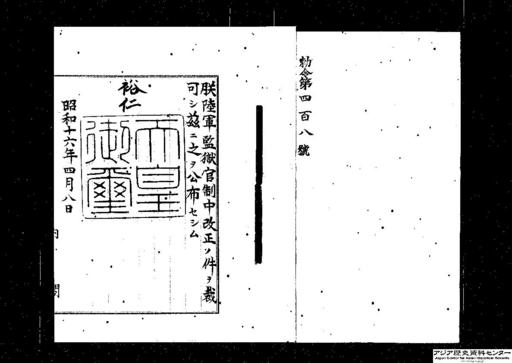 勅令第四百八號
朕陸軍監獄官制中改正ノ件ヲ裁
可シ茲ニ之ヲ公布セシム
裕仁
天皇
御璽
昭和十六年四月八日
内閣
アジア歴史資料センター
Japan Center for Asian Historical Records